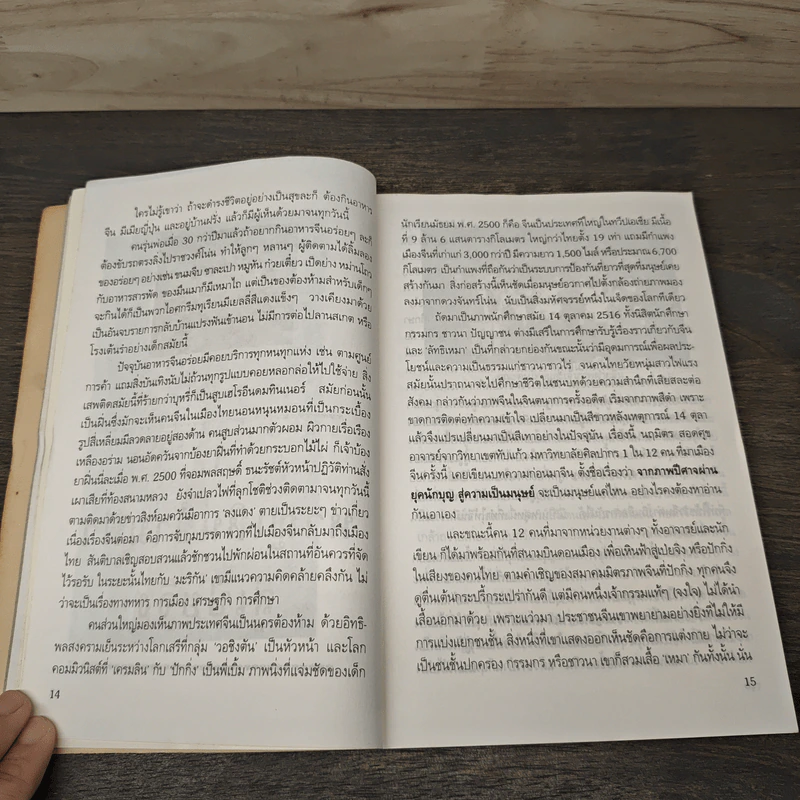 ใครไม่รู้เขาว่า ถ้าจะดำรงชีวิตอยู่อย่างเป็นสุขละก็ ต้องกินอาหาร
จีน มีเมียญี่ปุ่น และอยู่บ้านฝรั่ง แล้วก็มีผู้เห็นด้วยมาจนทุกวันนี้
คนรุ่นพ่อเมื่อ 30 กว่าปีมาแล้วถ้าอยากกินอาหารจีนอร่อยๆ ละก็
ต้องขับรถตรงลิ่งไปราชวงศ์โน่น ทำให้ลูกๆ หลานๆ ผู้ติดตามได้ลิ้มลอง
ของอร่อยๆ อย่างเช่น ขนมจีบ ซาละเปา หมูหัน ก๋วยเตี๋ยว เป็ดย่าง หม่านโถว
กับอาหารสารพัด ของมึนเมาก็มีเหมาไถ แต่เป็นของต้องห้ามสำหรับเด็กๆ
จะกินได้ก็เป็นพวกไอศกรีมทุเรียนมีเยลลี่สีแดงแข็งๆ วางเคียงมาด้วย
เป็นอันจบรายการกลับบ้านแปรงฟันเข้านอน ไม่มีการต่อไปลานสเกต หรือ
โรงเต้นรำอย่างเด็กสมัยนี้
ปัจจุบันอาหารจีนอร่อยมีคอยบริการทุกหนทุกแห่ง เช่น ตามศูนย์
การค้า แถมสิ่งบันเทิงนับไม่ถ้วนทุกรูปแบบคอยหลอกล่อให้ไปใช้จ่าย สิ่ง
เสพติดสมัยนี้ที่ร้ายกว่าบุหรี่ก็เป็นสูบเฮโรอีนดมทินเนอร์ สมัยก่อนนั้น
เป็นฝิ่นซึ่งมักจะเห็นคนจีนในเมืองไทยนอนหนุนหมอนที่เป็นกระเบื้อง
รูปสี่เหลี่ยมมีลวดลายอยู่สองด้าน คนสูบส่วนมากตัวผอม ผิวกายเรื่อเรือง
เหลืองอร่าม นอนอัดควันจากบ้องยาฝิ่นที่ทำด้วยกระบอกไม้ไผ่ ก็เจ้าบ้อง
ยาฝิ่นนี่ละเมื่อ พ.ศ. 2500 ที่จอมพลสฤษดิ์ ธนะรัชต์หัวหน้าปฏิวัติท่านสั่ง
เผาเสียที่ท้องสนามหลวง ยังจำเปลวไฟที่ลุกโชติช่วงติดตามาจนทุกวันนี้
ตามติดมาด้วยข่าวสิงห์อมควันมีอาการ 'ลงแดง' ตายเป็นระยะๆ ข่าวเกี่ยว
เนื่องเรื่องจีนต่อมา คือการจับกุมบรรดาพวกที่ไปเมืองจีนกลับมาถึงเมือง
ไทย สันติบาลเชิญสอบสวนแล้วชักชวนไปพักผ่อนในสถานที่อันควรที่จัด
ไว้รอรับ ในระยะนั้นไทยกับ 'มะริกัน' เขามีแนวความคิดคล้ายคลึงกัน ไม่
ว่าจะเป็นเรื่องทางทหาร การเมือง เศรษฐกิจ การศึกษา
คนส่วนใหญ่มองเห็นภาพประเทศจีนเป็นนครต้องห้าม ด้วยอิทธิ-
พลสงครามเย็นระหว่างโลกเสรีที่กลุ่ม 'วอชิงตัน' เป็นหัวหน้า และโลก
คอมมิวนิสต์ที่ 'เครมลิน' กับ 'ปักกิ่ง' เป็นพี่เบิ้ม ภาพนิ่งที่แจ่มชัดของเด็ก
14
นักเรียนมัธยม พ.ศ. 2500 ก็คือ จีนเป็นประเทศที่ใหญ่ในทวีปเอเชีย มีเนื้อ
ที่ 9 ล้าน 6 แสนตารางกิโลเมตร ใหญ่กว่าไทยตั้ง 19 เท่า แถมมีกำแพง
เมืองจีนที่เก่าแก่ 3,000 กว่าปี มีความยาว 1,500 ไมล์ หรือประมาณ 6,700
กิโลเมตร เป็นกำแพงที่ถือกันว่าเป็นระบบการป้องกันที่ยาวที่สุดที่มนุษย์เคย
สร้างกันมา สิ่งก่อสร้างนี้เห็นชัดเมื่อมนุษย์อวกาศไปตั้งกล้องถ่ายภาพมอง
ลงมาจากดวงจันทร์โน่น นับเป็นสิ่งมหัศจรรย์หนึ่งในเจ็ดของโลกทีเดียว
ถัดมาเป็นภาพนักศึกษาสมัย 14 ตุลาคม 2516 ทั้งนิสิตนักศึกษา
กรรมกร ชาวนา ปัญญาชน ต่างมีเสรีในการศึกษารับรู้เรื่องราวเกี่ยวกับจีน
และ 'ลัทธิเหมา' เป็นที่กล่าวยกย่องกันขณะนั้นว่ามีอุดมการณ์เพื่อผลประ-
โยชน์และความเป็นธรรมแก่ชาวนาชาวไร่ จนคนไทยวัยหนุ่มสาวไฟแรง
สมัยนั้นปรารถนาจะไปศึกษาชีวิตในชนบทด้วยความสำนึกที่เสียสละต่อ
สังคม กล่าวกันว่าภาพจีนในจินตนาการครั้งอดีต เริ่มจากภาพสีดำ เพราะ
ขาดการติดต่อทำความเข้าใจ เปลี่ยนมาเป็นสีขาวหลังเหตุการณ์ 14 ตุลา
แล้วจึงแปรเปลี่ยนมาเป็นสีเทาอย่างในปัจจุบัน เรื่องนี้ นฤมิตร สอดศุข
อาจารย์จากวิทยาเขตทับแก้ว มหาวิทยาลัยศิลปากร 1 ใน 12 คน ที่มาเมือง
จีนครั้งนี้ เคยเขียนบทความก่อนมาจีน ตั้งชื่อเรื่องว่า จากภาพปีศาจผ่าน
ยุคนักบุญ สู่ความเป็นมนุษย์ จะเป็นมนุษย์แค่ไหน อย่างไรคงต้องหาอ่าน
กันเอาเอง
และขณะนี้คน 12 คนที่มาจากหน่วยงานต่างๆ ทั้งอาจารย์และนัก
เขียน ก็ได้มาพร้อมกันที่สนามบินดอนเมือง เพื่อเหินฟ้าสู่เป่ยจิง หรือปักกิ่ง
ในเสียงของคนไทย ตามคำเชิญของสมาคมมิตรภาพจีนที่ปักกิ่ง ทุกคนจึง
ดูตื่นเต้นกระปรี้กระเปร่ากันดี แต่มีคนหนึ่งเจ้ากรรมแท้ๆ (จงใจ) ไม่ได้นำ
เสื้อนอกมาด้วย เพราะแว่วมา ประชาชนจีนเขาพยายามอย่างยิ่งที่ไม่ให้มี
การแบ่งแยกชนชั้น สิ่งหนึ่งที่เขาแสดงออกเห็นชัดคือการแต่งกาย ไม่ว่าจะ
เป็นชนชั้นปกครอง กรรมกร หรือชาวนา เขาก็สวมเสื้อ 'เหมา' กันทั้งนั้น นั่น
15